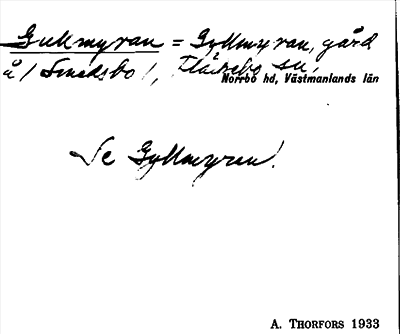 Gullmyran = Gyllmyran, gård
å / Smedsbo /, Fläckebo sn,
Norrbo hd, Västmanlands län
Se Gyllmyren!
A. THORFORS 1933